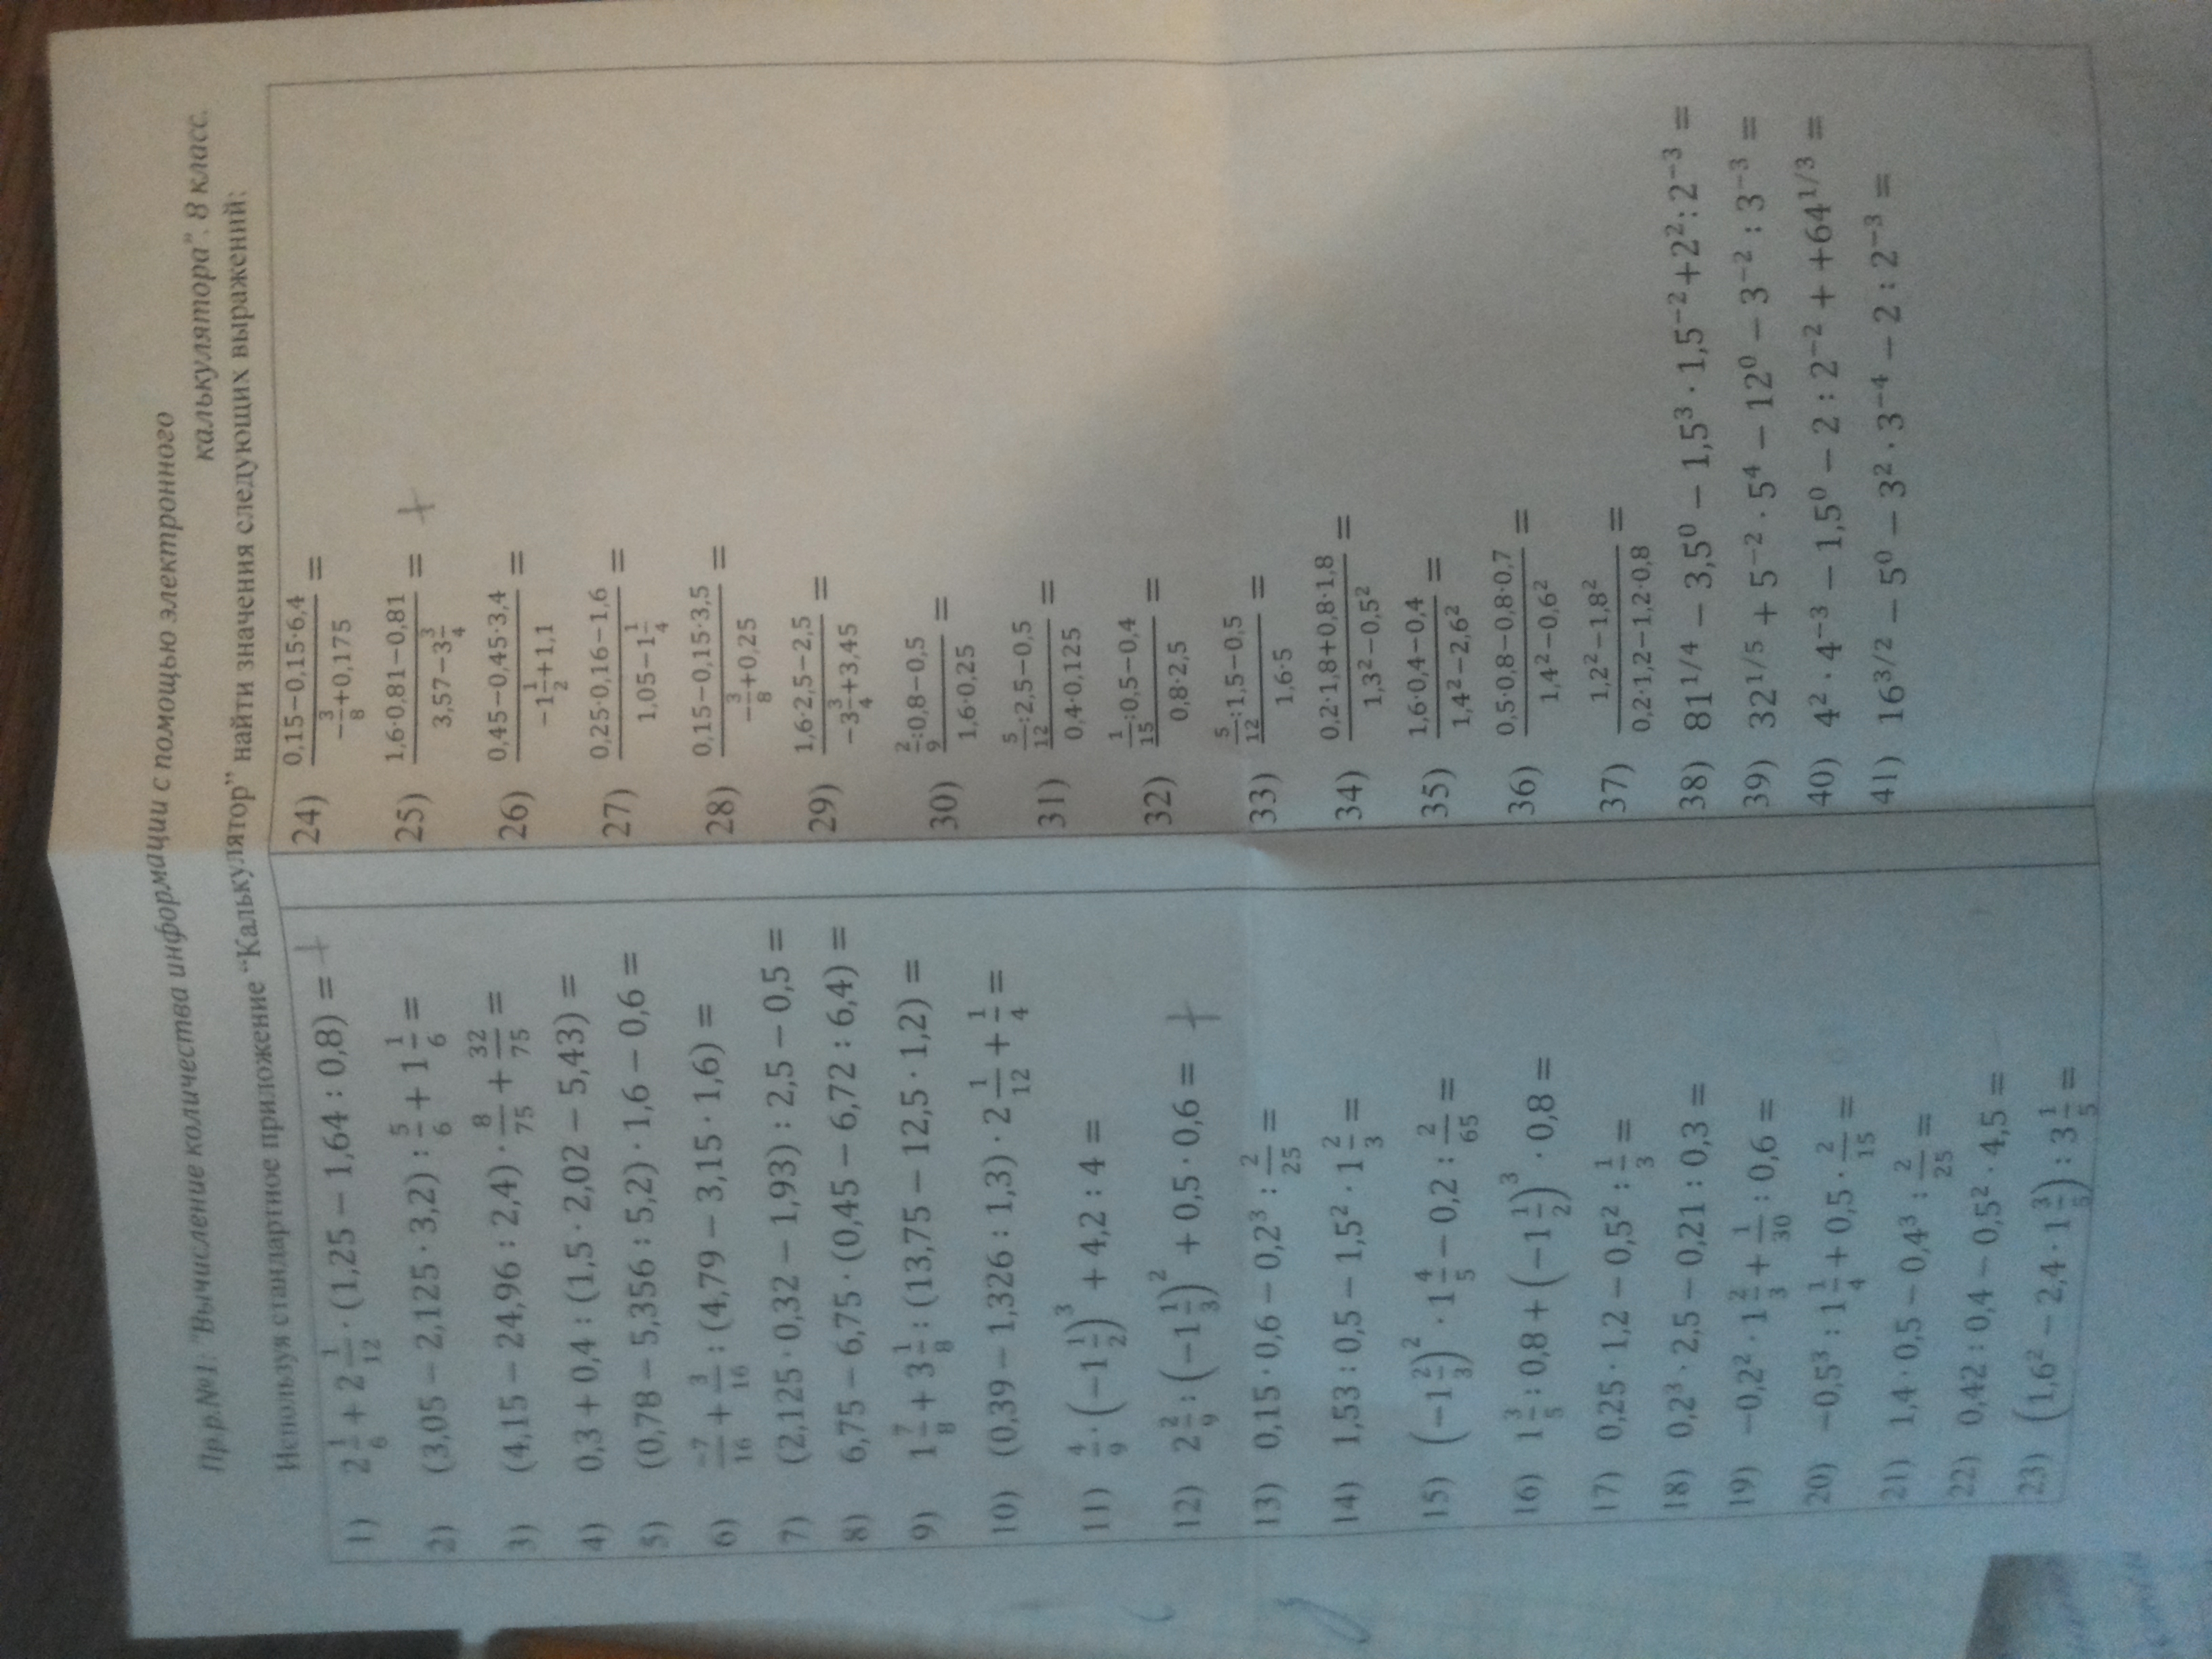 Пр.р.№1. "Вычисление количества информации с помощью электронного
калькулятора". 8 класс.
Используя стандартное приложение "Калькулятор" найти значения следующих выражений:
1) 2 1/6 + 2 1/12 · (1,25 − 1,64 : 0,8) = +
2) (3,05 − 2,125 · 3,2) : 5/6 + 1 1/6 =
3) (4,15 − 24,96 : 2,4) · 8/75 + 32/75 =
4) 0,3 + 0,4 : (1,5 · 2,02 − 5,43) =
5) (0,78 − 5,356 : 5,2) · 1,6 − 0,6 =
6) −7/16 + 3/16 : (4,79 − 3,15 · 1,6) =
7) (2,125 · 0,32 − 1,93) : 2,5 − 0,5 =
8) 6,75 − 6,75 · (0,45 − 6,72 : 6,4) =
9) 1 7/8 + 3 1/8 : (13,75 − 12,5 · 1,2) =
10) (0,39 − 1,326 : 1,3) · 2 1/12 + 1/4 =
11) 4/9 · (−1 1/2)³ + 4,2 : 4 =
12) 2 2/9 : (−1 1/3)² + 0,5 · 0,6 = +
13) 0,15 · 0,6 − 0,2³ : 2/25 =
14) 1,53 : 0,5 − 1,5² · 1 2/3 =
15) (−1 2/3)² · 1 4/5 − 0,2 : 2/65 =
16) 1 3/5 : 0,8 + (−1 1/2)³ · 0,8 =
17) 0,25 · 1,2 − 0,5² : 1/3 =
18) 0,2³ · 2,5 − 0,21 : 0,3 =
19) −0,2² · 1 2/3 + 1/30 : 0,6 =
20) −0,5³ : 1 1/4 + 0,5 · 2/15 =
21) 1,4 · 0,5 − 0,4³ : 2/25 =
22) 0,42 : 0,4 − 0,5² · 4,5 =
23) (1,6² − 2,4 · 1 3/5) : 3 1/5 =
24) (0,15−0,15·6,4)/(−3/8+0,175) =
25) (1,6·0,81−0,81)/(3,57−3 3/4) = +
26) (0,45−0,45·3,4)/(−1 1/2+1,1) =
27) (0,25·0,16−1,6)/(1,05−1 1/4) =
28) (0,15−0,15·3,5)/(−3/8+0,25) =
29) (1,6·2,5−2,5)/(−3 3/4+3,45) =
30) (2/9:0,8−0,5)/(1,6·0,25) =
31) (5/12:2,5−0,5)/(0,4·0,125) =
32) (1/15:0,5−0,4)/(0,8·2,5) =
33) (5/12:1,5−0,5)/(1,6·5) =
34) (0,2·1,8+0,8·1,8)/(1,3²−0,5²) =
35) (1,6·0,4−0,4)/(1,4²−2,6²) =
36) (0,5·0,8−0,8·0,7)/(1,4²−0,6²) =
37) (1,2²−1,8²)/(0,2·1,2−1,2·0,8) =
38) 81^1/4 − 3,5⁰ − 1,5³ · 1,5⁻²+2²: 2⁻³ =
39) 32^1/5 + 5⁻² · 5⁴ − 12⁰ − 3⁻² : 3⁻³ =
40) 4² · 4⁻³ − 1,5⁰ − 2 : 2⁻² + +64^1/3 =
41) 16^3/2 − 5⁰ − 3² · 3⁻⁴ − 2 : 2⁻³ =